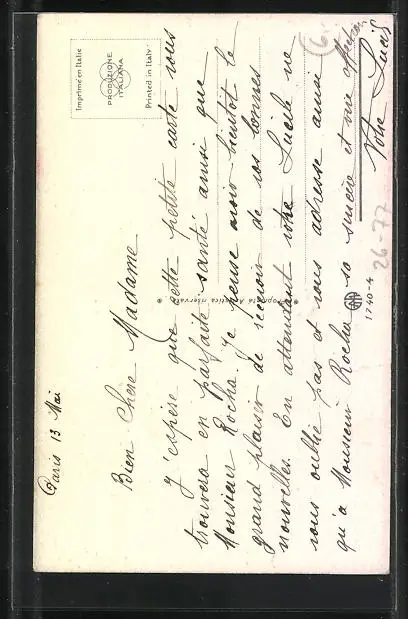 Paris 13 Mai
Bien Chère Madame
J'espère que cette petite carte vous
trouvera en parfaite santé ainsi que
Monsieur Rocha. Je pense avoir bientôt le
grand plaisir de recevoir de vos bonnes
nouvelles. En attendant votre Lucile ne
vous oublie pas et vous adresse ainsi
qu'à Monsieur Rocha sa sincère et vive affection
Votre Lucile
Imprimé en Italie
PRODUZIONE
ITALIANA
Printed in Italy
Proprietà Artistica riservata
1740-4
26-77
6